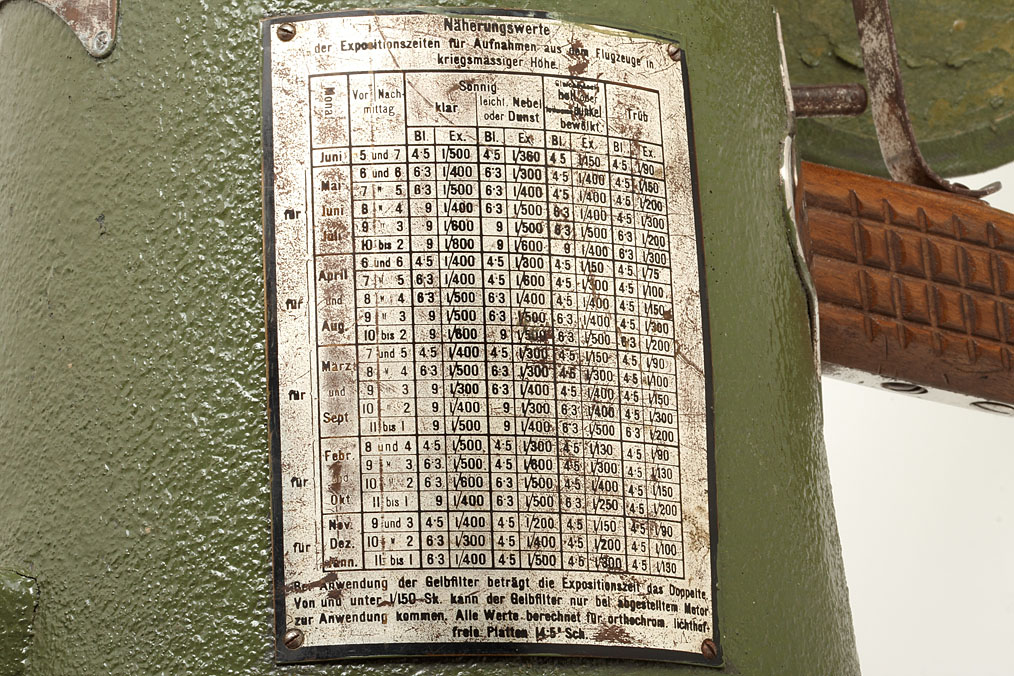 Näherungswerte
der Expositionszeiten für Aufnahmen aus dem Flugzeuge in
kriegsmässiger Höhe.
Monat Vor- Nach- mittag Sonnig Trüb
klar leicht. Nebel oder Dunst dunkel bewölkt
Bl. Ex. Bl. Ex. Bl. Ex. Bl. Ex.
Juni 5 und 7 4·5 1/500 4·5 1/360 4·5 1/150 4·5 1/90
für Mai Juni Juli
6 und 6 6·3 1/400 6·3 1/300 4·5 1/400 4·5 1/150
7 " 5 6·3 1/500 6·3 1/400 4·5 1/400 4·5 1/200
8 " 4 9 1/400 6·3 1/500 6·3 1/400 4·5 1/300
9 " 3 9 1/600 9 1/500 6·3 1/400 6·3 1/200
10 bis 2 9 1/800 9 1/600 9 1/400 6·3 1/300
für April und Aug.
6 und 6 4·5 1/400 4·5 1/300 4·5 1/150 4·5 1/75
7 " 5 6·3 1/400 4·5 1/600 4·5 1/300 4·5 1/100
8 " 4 6·3 1/500 6·3 1/400 4·5 1/400 4·5 1/150
9 " 3 9 1/500 6·3 1/500 6·3 1/400 4·5 1/300
10 bis 2 9 1/600 9 1/500 6·3 1/500 6·3 1/200
für März und Sept
7 und 5 4·5 1/400 4·5 1/300 4·5 1/150 4·5 1/90
8 " 4 6·3 1/500 6·3 1/300 4·5 1/300 4·5 1/100
9 " 3 9 1/300 6·3 1/400 4·5 1/400 4·5 1/150
10 " 2 9 1/400 9 1/300 6·3 1/400 4·5 1/300
11 bis 1 9 1/500 9 1/400 6·3 1/500 6·3 1/200
für Febr und Okt
8 und 4 4·5 1/500 4·5 1/300 4·5 1/130 4·5 1/90
9 " 3 6·3 1/500 4·5 1/600 4·5 1/300 4·5 1/130
10 " 2 6·3 1/600 6·3 1/500 6·3 1/400 4·5 1/150
11 bis 1 9 1/400 6·3 1/500 6·3 1/250 4·5 1/200
für Nov. Dez. Jann.
9 und 3 4·5 1/400 4·5 1/200 4·5 1/150 4·5 1/90
10 " 2 6·3 1/300 4·5 1/400 4·5 1/200 4·5 1/100
11 bis 1 6·3 1/400 4·5 1/500 4·5 1/300 4·5 1/130
Bei Anwendung der Gelbfilter beträgt die Expositionszeit das Doppelte.
Von und unter 1/150 Sk. kann der Gelbfilter nur bei abgestelltem Motor
zur Anwendung kommen. Alle Werte berechnet für orthochrom. lichthof-
freie Platten 14·5° Sch.